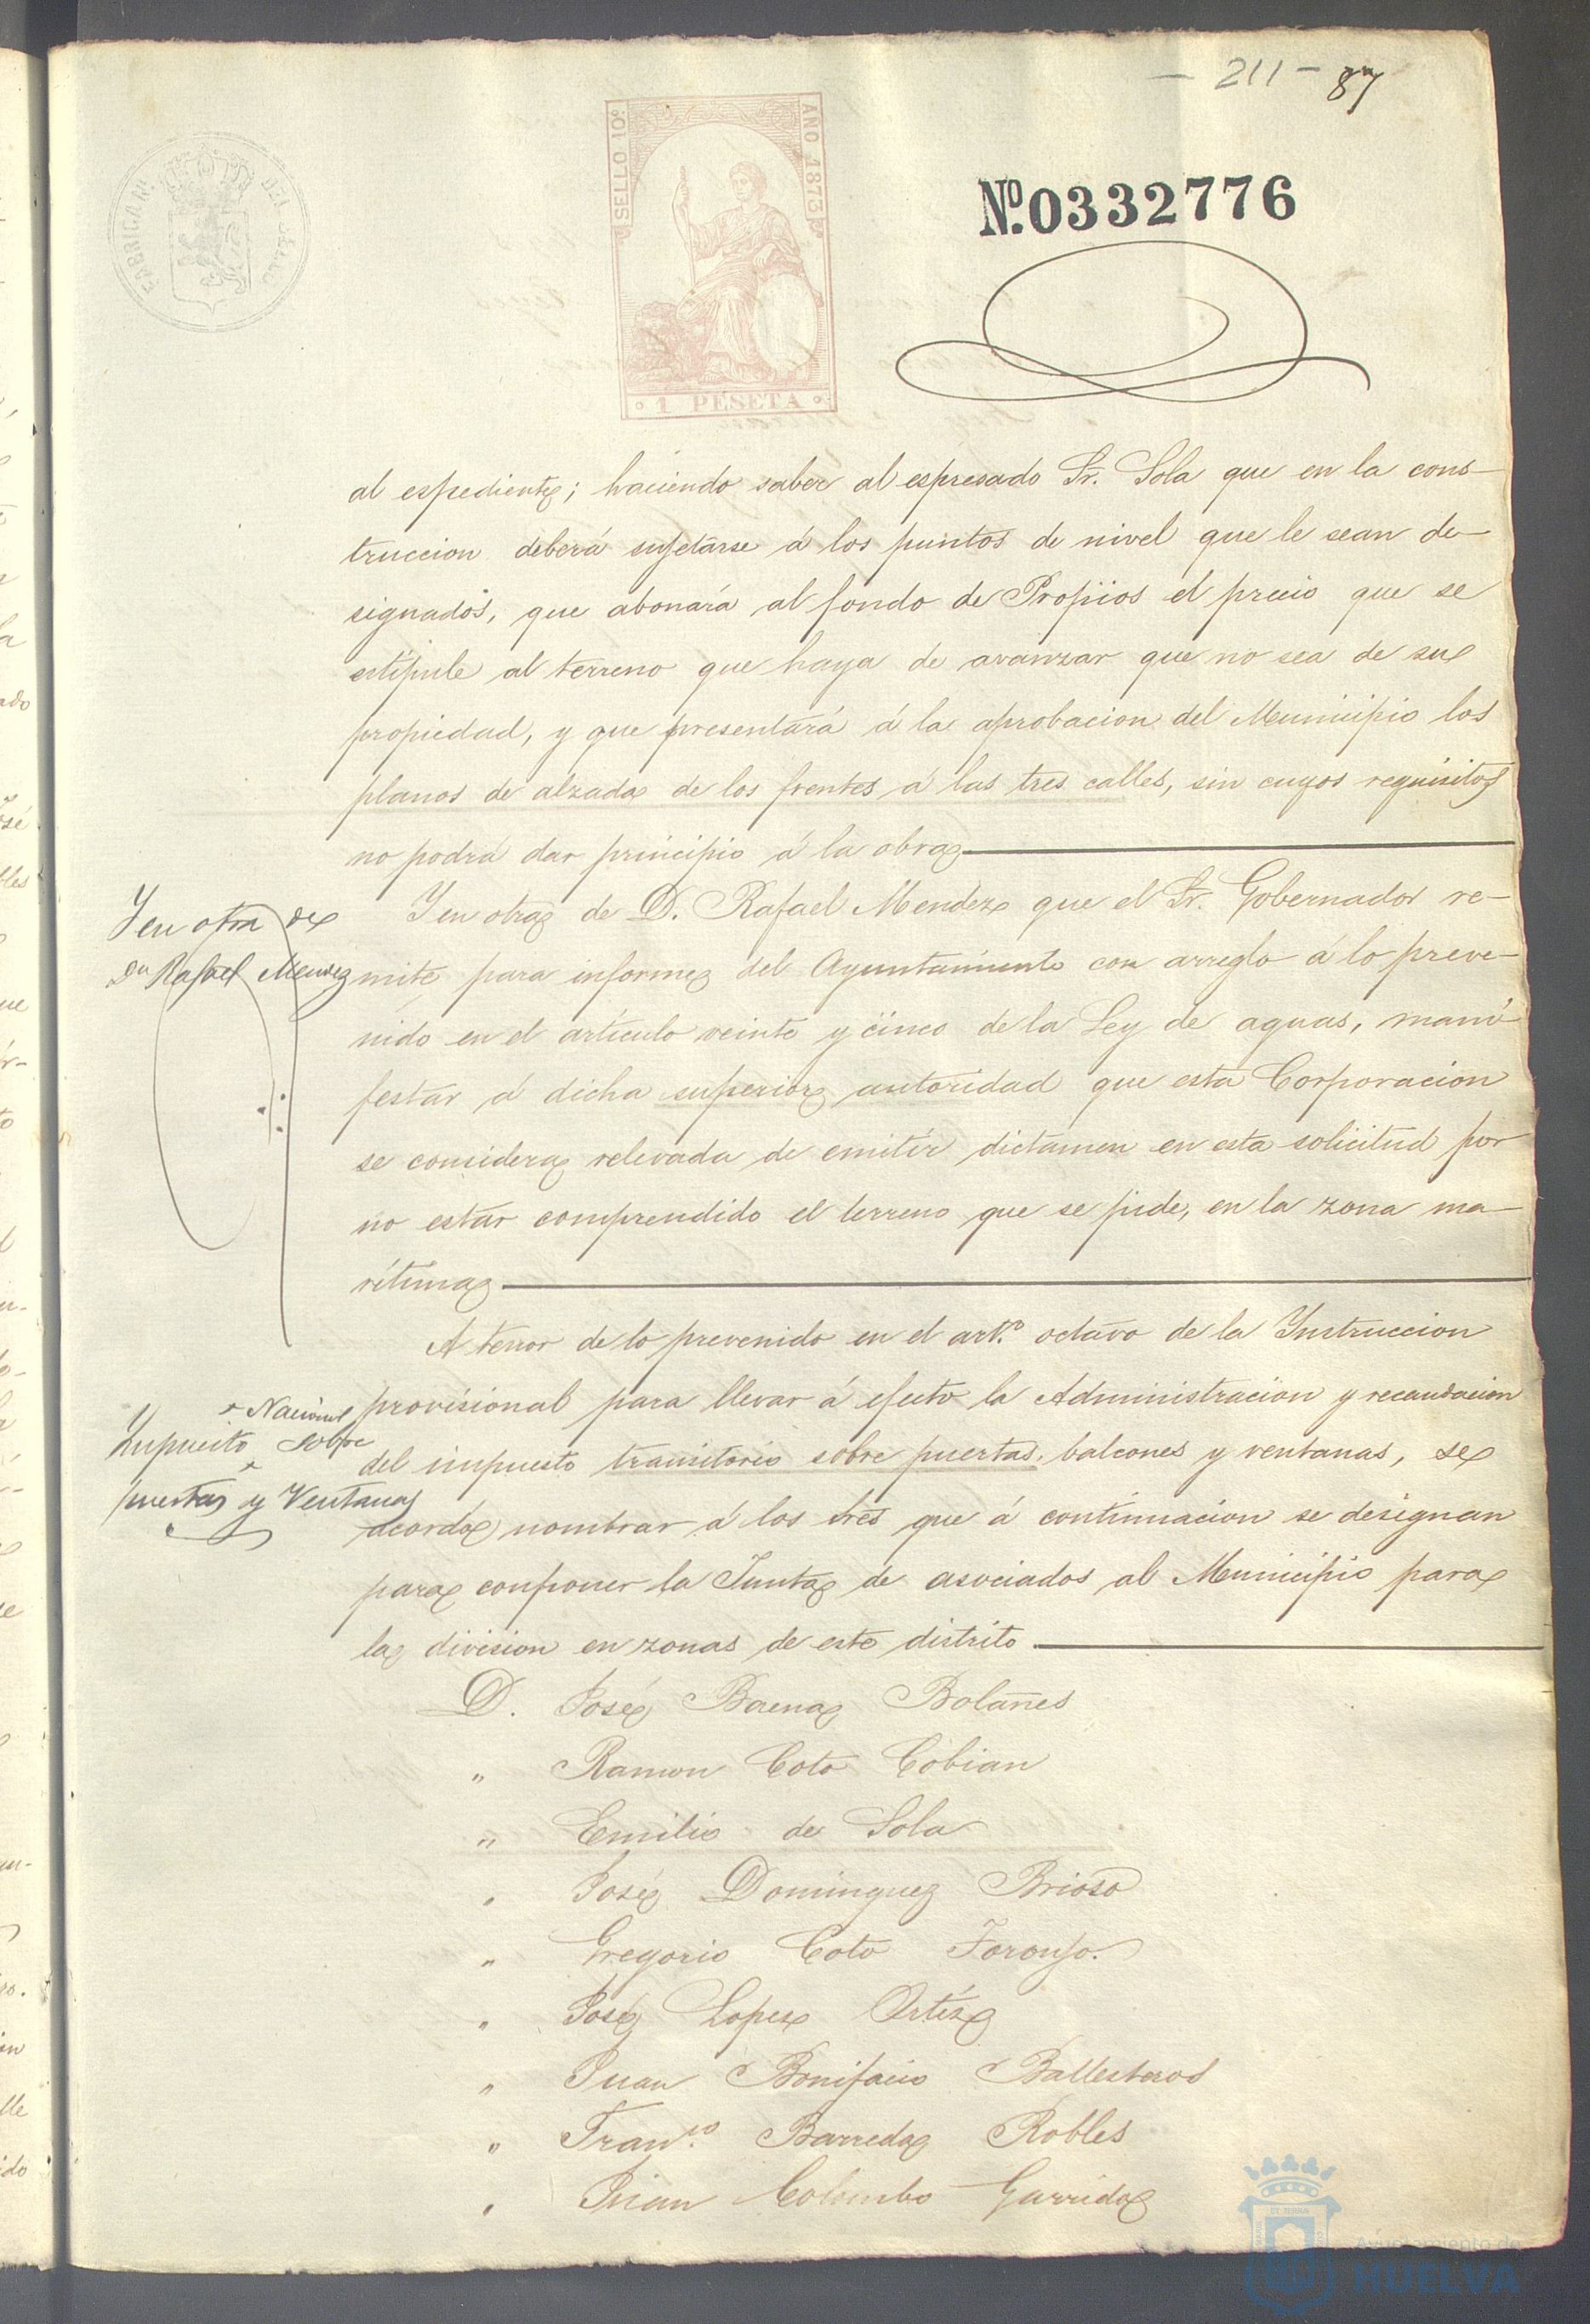 - 211 - 87
FABRICA NL. DEL SELLO
SELLO 10º
AÑO 1873
1 PESETA
Nº. 0332776
al espediente; haciendo saber al espresado Sr. Sola que en la cons-
truccion deberá sujetarse á los puntos de nivel que le sean de-
signados, que abonará al fondo de Propios el precio que se
estipule al terreno que haya de avanzar que no sea de su
propiedad, y que presentará á la aprobacion del Municipio los
planos de alzada de los frentes á las tres calles, sin cuyos requisitos
no podrá dar principio á la obra
Y en otra de
Dn Rafael Mendez
Y en otra de D. Rafael Mendez que el Sr. Gobernador re-
mite para informe del Ayuntamiento con arreglo á lo preve-
nido en el artículo veinte y cinco de la Ley de aguas, mani-
festar á dicha superior autoridad que esta Corporacion
se considera relevada de emitir dictamen en esta solicitud por
no estar comprendido el terreno que se pide, en la zona ma-
rítima
A tenor de lo prevenido en el artº. octavo de la Instruccion
Nacional
Impuesto sobre
puertas y Ventanas
provisional para llevar á efecto la Administracion y recaudacion
del impuesto transitorio sobre puertas, balcones y ventanas, se
acordó nombrar á los tres que á continuacion se designan
para componer la Junta de asociados al Municipio para
la division en zonas de este distrito
D. José Baena Bolañes
" Ramon Coto Cobian
" Emilio de Sola
" José Dominguez Brioso
" Gregorio Coto Toronjo.
" José Lopez Ortíz
" Juan Bonifacio Ballesteros
" Franco. Barreda Robles
" Juan Colombo Garrido
Ayuntamiento de
HUELVA